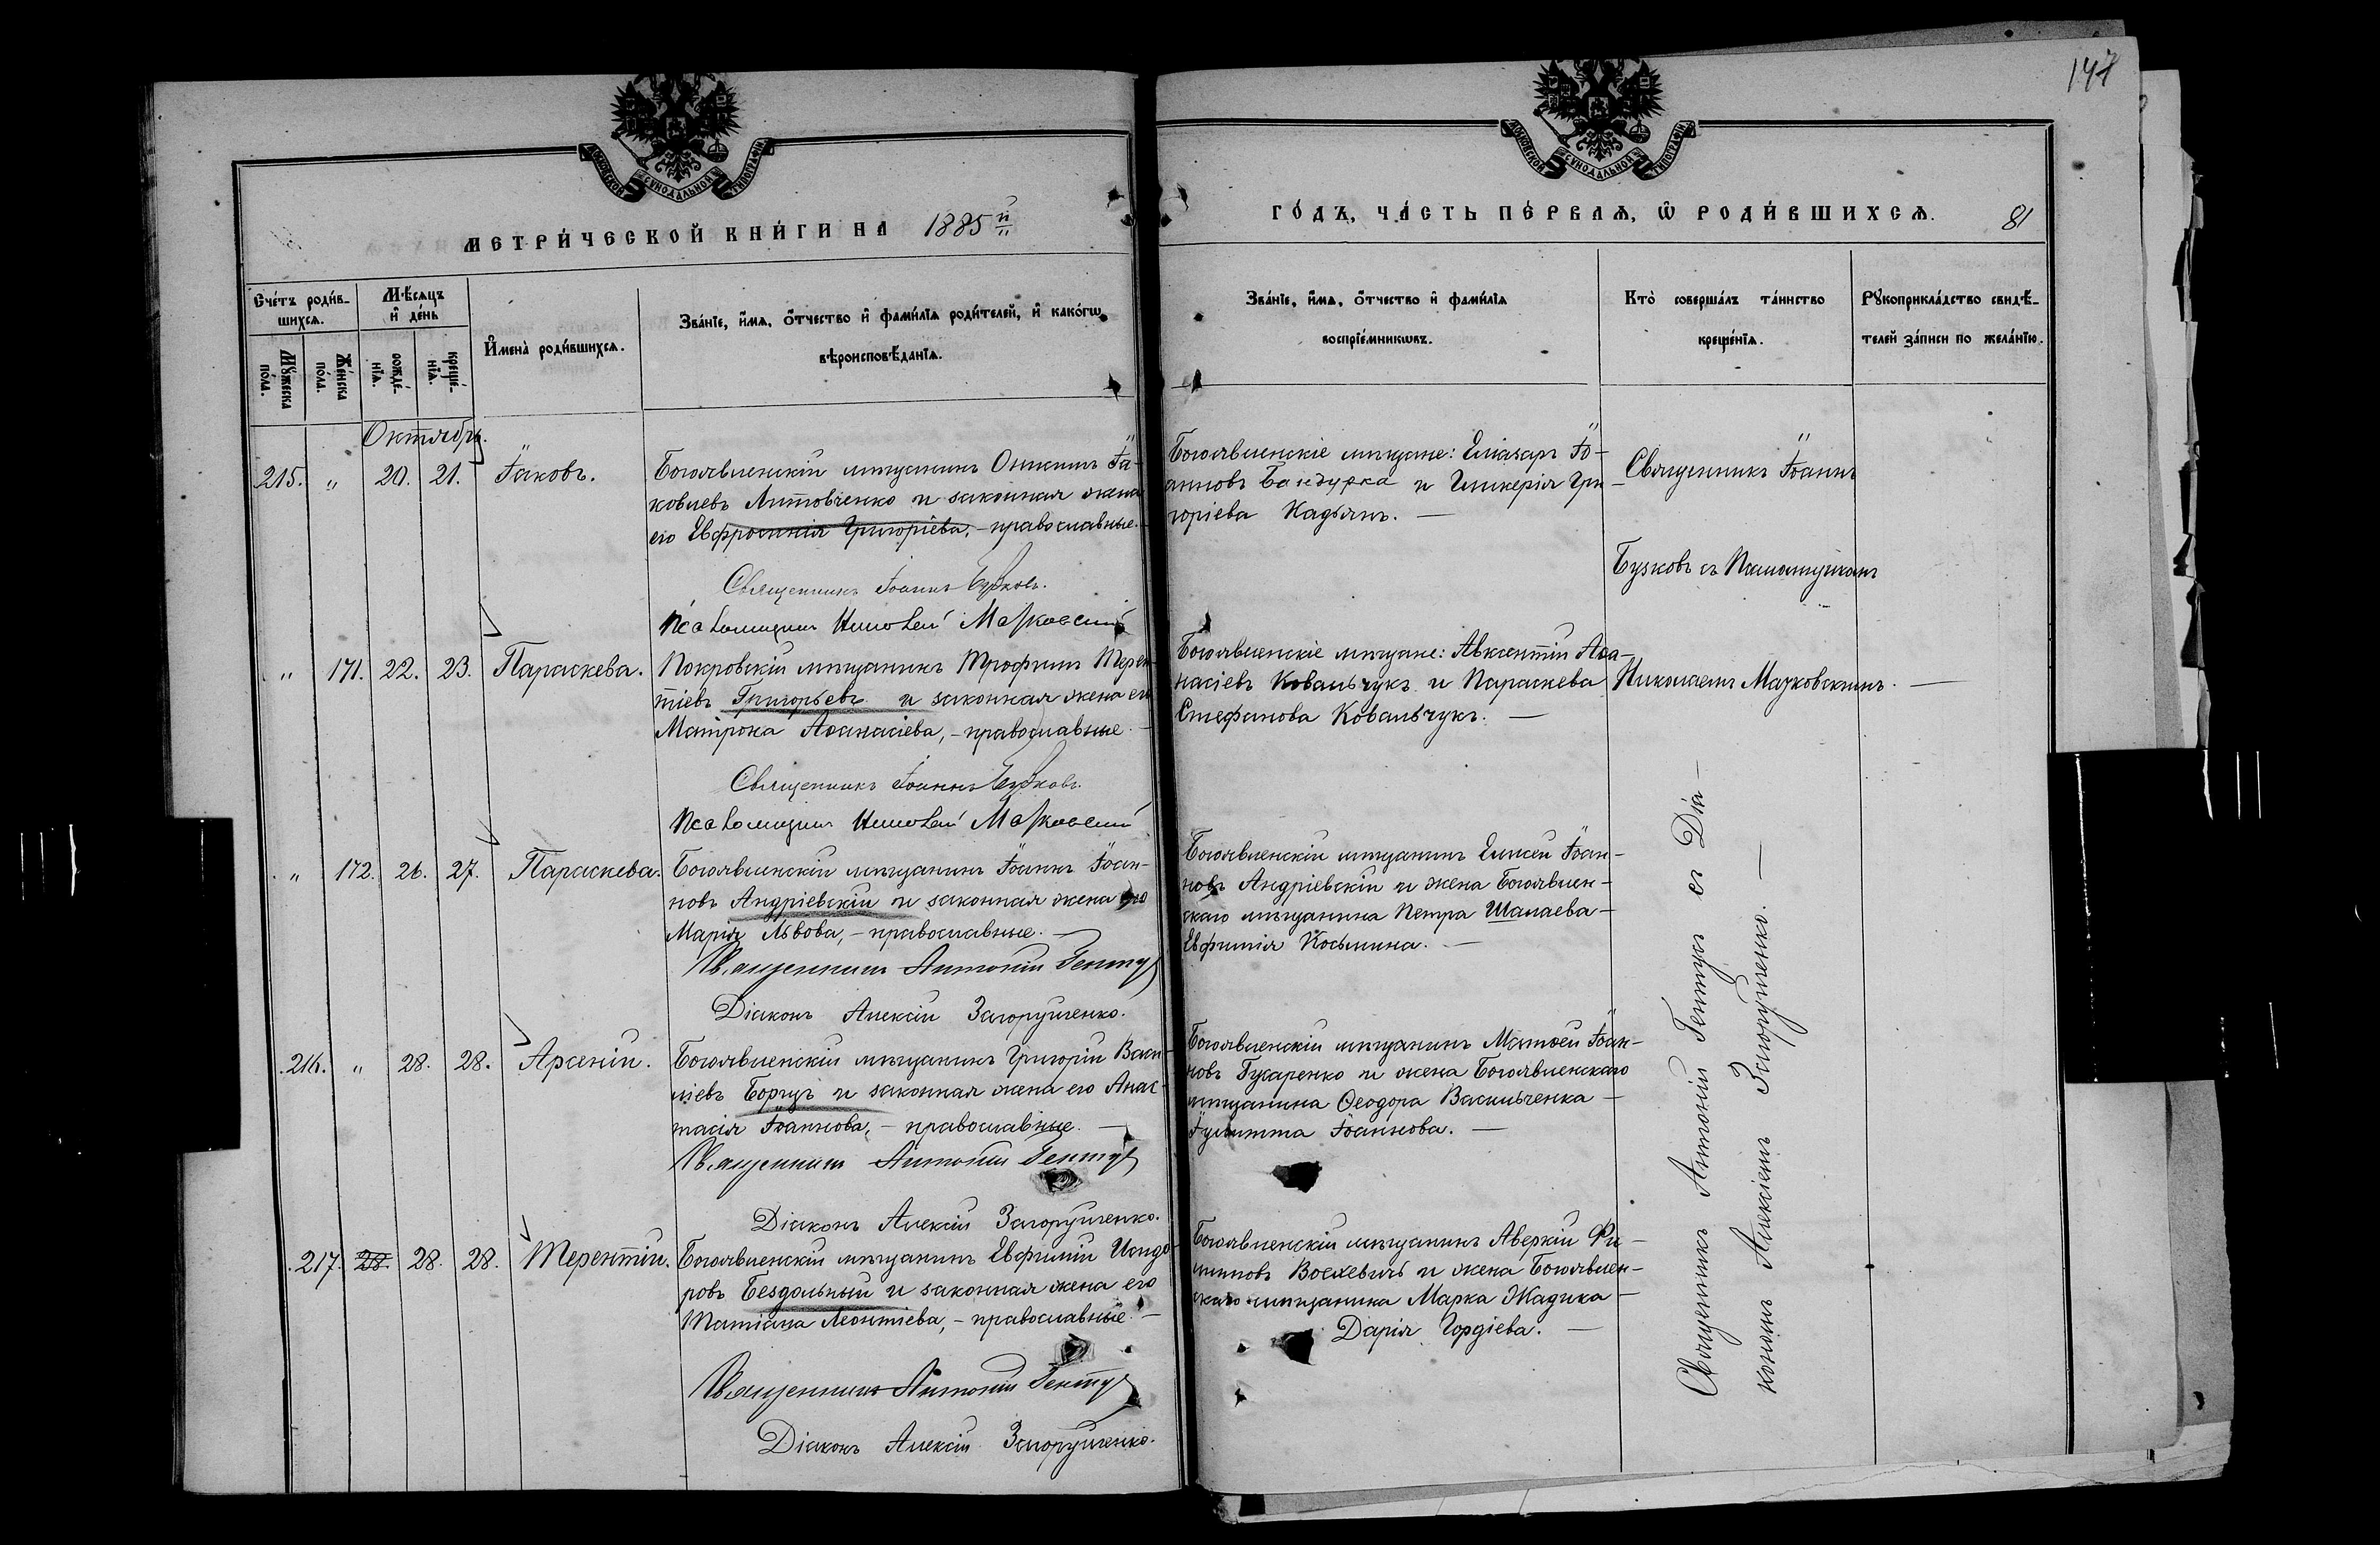 147
МОСКОВСКОЙ СѴНОДАЛЬНОЙ ТИПОГРАФІИ
МОСКОВСКОЙ СѴНОДАЛЬНОЙ ТИПОГРАФІИ
МЕТРИ́ЧЕСКОЙ КНИ́ГИ НА 1885й
ГО́ДЪ, ЧА́СТЬ ПЕ́РВАѦ, Ѡ҆ РОДИ́ВШИХСѦ. 81
Сче́тъ роди́в-
шихсѧ.
Мѣ́сѧцъ
и҆ де́нь
Мꙋ́жеска
по́ла.
Же́нска
по́ла.
рожде́-
нїѧ.
креще́-
нїѧ.
И҆мена̀ роди́вшихсѧ.
Зва́нїе, и҆́мѧ, ѻ҆́тчество и҆ фами́лїѧ роди́телей, и҆ како́гѡ
вѣроисповѣ́данїѧ.
Зва́нїе, и҆́мѧ, ѻ҆́тчество и҆ фами́лїѧ
воспрїе́мникѡвъ.
Кто̀ соверша́лъ та́инство
креще́нїѧ.
Рꙋкоприкла́дство свидѣ́-
телей за́писи по жела́нїю.
Октябрь.
215. " 20. 21. Іаковъ.
Богоявленскій мѣщанинъ Онисимъ Іа-
ковлевъ Литовченко и законная жена
его Евфросинія Григоріева, - православные. -
Священникъ Іоаннъ Бузковъ.
Псаломщикъ Николай Мазковскій
Богоявленскіе мѣщане: Еліазаръ Іо-
анновъ Бандурка и Гликерія Гри-
горіева Кадьянъ. -
Священникъ Іоаннъ
Бузковъ съ Псаломщикомъ
Николаемъ Мазковскимъ. -
" 171. 22. 23. Параскева.
Покровскій мѣщанинъ Трофимъ Терен-
тіевъ Григорьевъ и законная жена его
Матрона Аѳанасіева, - православные. -
Священникъ Іоаннъ Бузковъ.
Псаломщикъ Николай Мазковскій
Богоявленскіе мѣщане: Авксентій Аѳа-
насіевъ Ковальчукъ и Параскева
Стефанова Ковальчукъ. -
" 172. 26. 27. Параскева.
Богоявленскій мѣщанинъ Іоаннъ Іоан-
новъ Андріевскій и законная жена его
Марія Львова, - православные. -
Священникъ Антоній Гентуз
Діаконъ Алексій Загорулченко.
Богоявленскій мѣщанинъ Елисей Іоан-
новъ Андріевскій и жена Богоявлен-
скаго мѣщанина Петра Шалаева -
Евфимія Косьмина. -
216. " 28. 28. Арсеній.
Богоявленскій мѣщанинъ Григорій Васи-
ліевъ Борщъ и законная жена его Анас-
тасія Іоаннова, - православные. -
Священникъ Антоній Гентуз
Діаконъ Алексій Загорулченко.
Богоявленскій мѣщанинъ Матѳей Іоан-
новъ Гусаренко и жена Богоявленскаго
мѣщанина Ѳеодора Васильченка -
Іулитта Іоаннова. -
217. 28. 28. 28. Терентій.
Богоявленскій мѣщанинъ Евфимій Исидо-
ровъ Бездольный и законная жена его
Татіана Леонтіева, - православные. -
Священникъ Антоній Гентуз
Діаконъ Алексій Загорулченко.
Богоявленскій мѣщанинъ Аверкій Фи-
липповъ и жена Богоявлен-
скаго мѣщанина Марка Жадика -
Дарія Гордіева. -
Священникъ Антоній Гентузъ съ Діа-
кономъ Алексіемъ Загорулченко. -